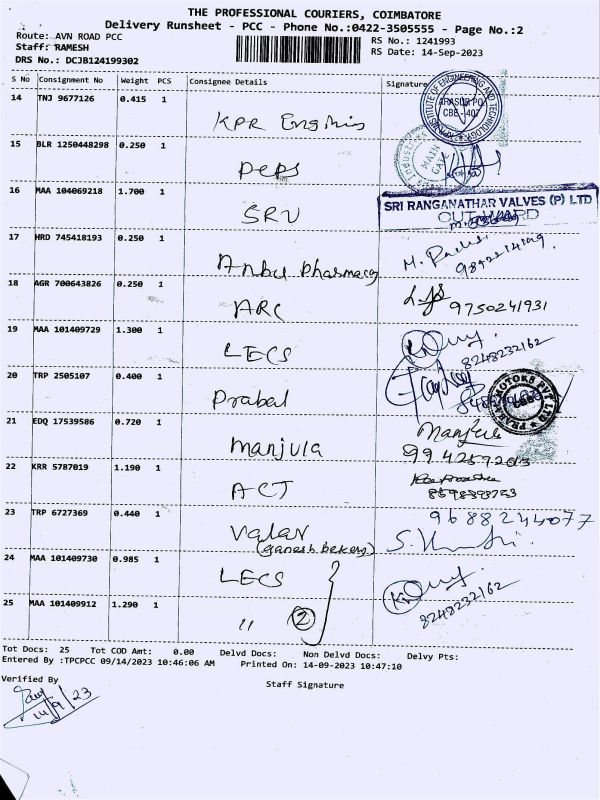 THE PROFESSIONAL COURIERS, COIMBATORE
Delivery Runsheet - PCC - Phone No.:0422-3505555 - Page No.:2
Route: AVN ROAD PCC
Staff: RAMESH
DRS No.: DCJB124199302
RS No.: 1241993
RS Date: 14-Sep-2023
S No Consignment No Weight PCS Consignee Details Signature
14 TNJ 9677126 0.415 1
KPR
INSTITUTE OF ENGINEERING AND TECHNOLOGY
ARASUR PO
CBE - 407
15 BLR 1250448298 0.250 1
PEPS
MAIN GATE
16 MAA 104069218 1.700 1
SRV
SRI RANGANATHAR VALVES (P) LTD
17 HRD 745418193 0.250 1
Anbu Pharmacy
18 AGR 700643826 0.250 1
ARC
9750241931
19 MAA 101409729 1.300 1
LECS
8248232162
20 TRP 2505107 0.400 1
Prabal
21 EDQ 17539586 0.720 1
Manjula
22 KRR 5787019 1.190 1
ACT
23 TRP 6727369 0.440 1
Valar
(Ganesh bekery)
9688244077
24 MAA 101409730 0.985 1
LECS
25 MAA 101409912 1.290 1
" 2
8248232162
Tot Docs: 25 Tot COD Amt: 0.00 Delvd Docs: Non Delvd Docs: Delvy Pts:
Entered By :TPCPCC 09/14/2023 10:46:06 AM Printed On: 14-09-2023 10:47:10
Verified By
Staff Signature
14/9/23